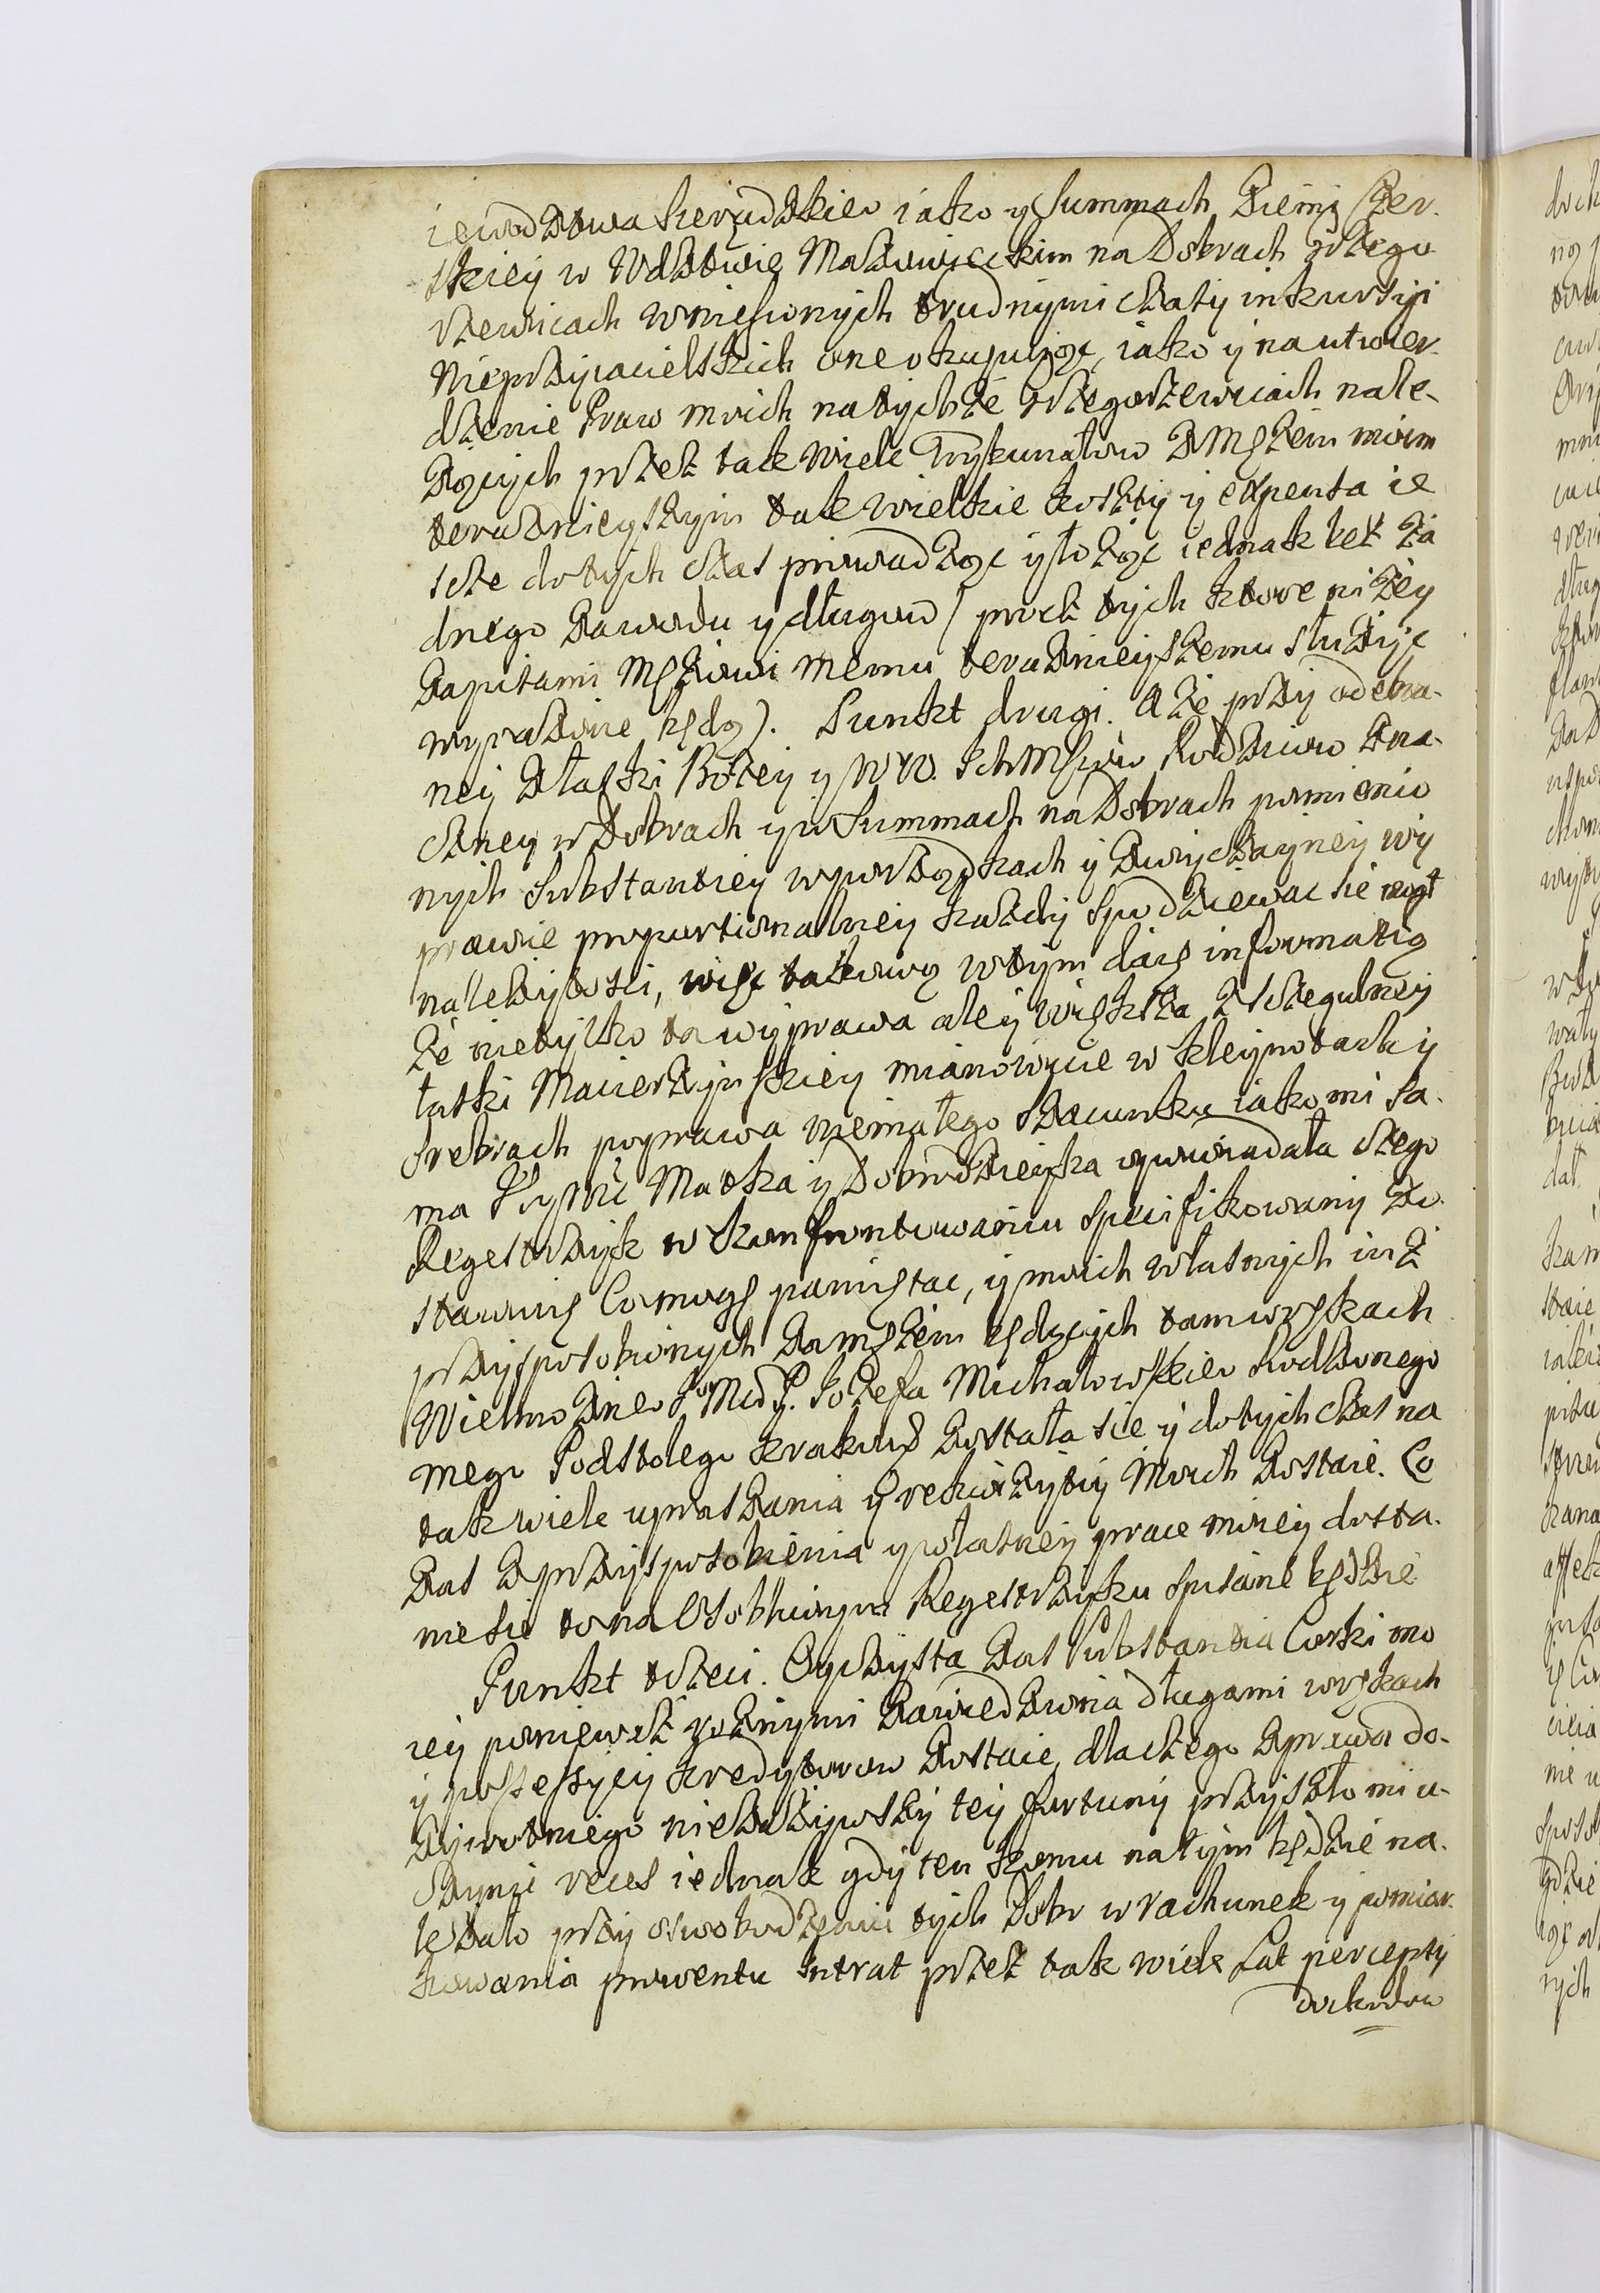 iewodztwa Sieradzkieo iako y Summach Ziemi Czer-
skiey w Wdztwie Mazowieckim na Dobrach Grzego
rzewicach wniesionych trudnymi czasy inkursyi
Nieprzyiacielskich one okupuiąc, iako y na utwier-
dzenie Praw moich na tychże Grzegorzewicach nale-
żących przez tak wiele Trybunałow z Mężem moim
teraznieyszym tak wielkie koszty y expensa ie
scze dotych czas prowadząc y łożąc iednak bez ża
dnego zawodu y długow (procz tych ktore niżey
zapisami Mężowi memu teraznieyszemu służyć
wyrażone będą). Punkt drugi. A że przy odebra-
ney z łaski Bożey y WW. Ich Mściow Rodzicow zna-
czney w Dobrach y w Summach na Dobrach pomienio
nych Substantiey w porządkach y zwyczayney wy
prawie proportionalney każdy spodziewac sie mogł
należytosci, więc takową w tym daię informatią
że nietylko ta wyprawa ale y większa z sczegulney
łaski Macierzynskiey mianowicie w kleynotach y
srebrach poprawa niemałego szacunku iako mi sa-
ma Jeymć Matka y Dobrodzieyka opowiadała czego
Regestrzyk w konfrontowaniu specifikowany zo-
stawuię Co mogę pamiętac, y moich własnych iuż
przysposobionych za mężem będących tam w rękach
Wielmożneo Jo Mci P. Jozefa Michałowskieo Rodzonego
mego Podstolego Krakows zostałasie y dotych czas na
tak wiele upraszania y rekwizytiy Moich zostaie. Co
zas z przysposobienia y własney prace moiey dosta-
nie sie to na Osobliwym Regestrzyku spisane będzie
Punkt trzeci. Oyczysta zas Substantia Corki mo
iey poniewasz roznymi zawiedziona długami w rękach
y possessyiey kredytorow zostaie, dla czego z prawa do-
żywotniego niezażywszy tey fortuny przyszło mi u-
czynic reces iednak gdy ten komu na tym będzie na-
leżało przy oswobodzeniu tych Dobr w rachunek y pomiar-
kowania prowentu Intrat przez tak wiele Lat percepty
dochodow